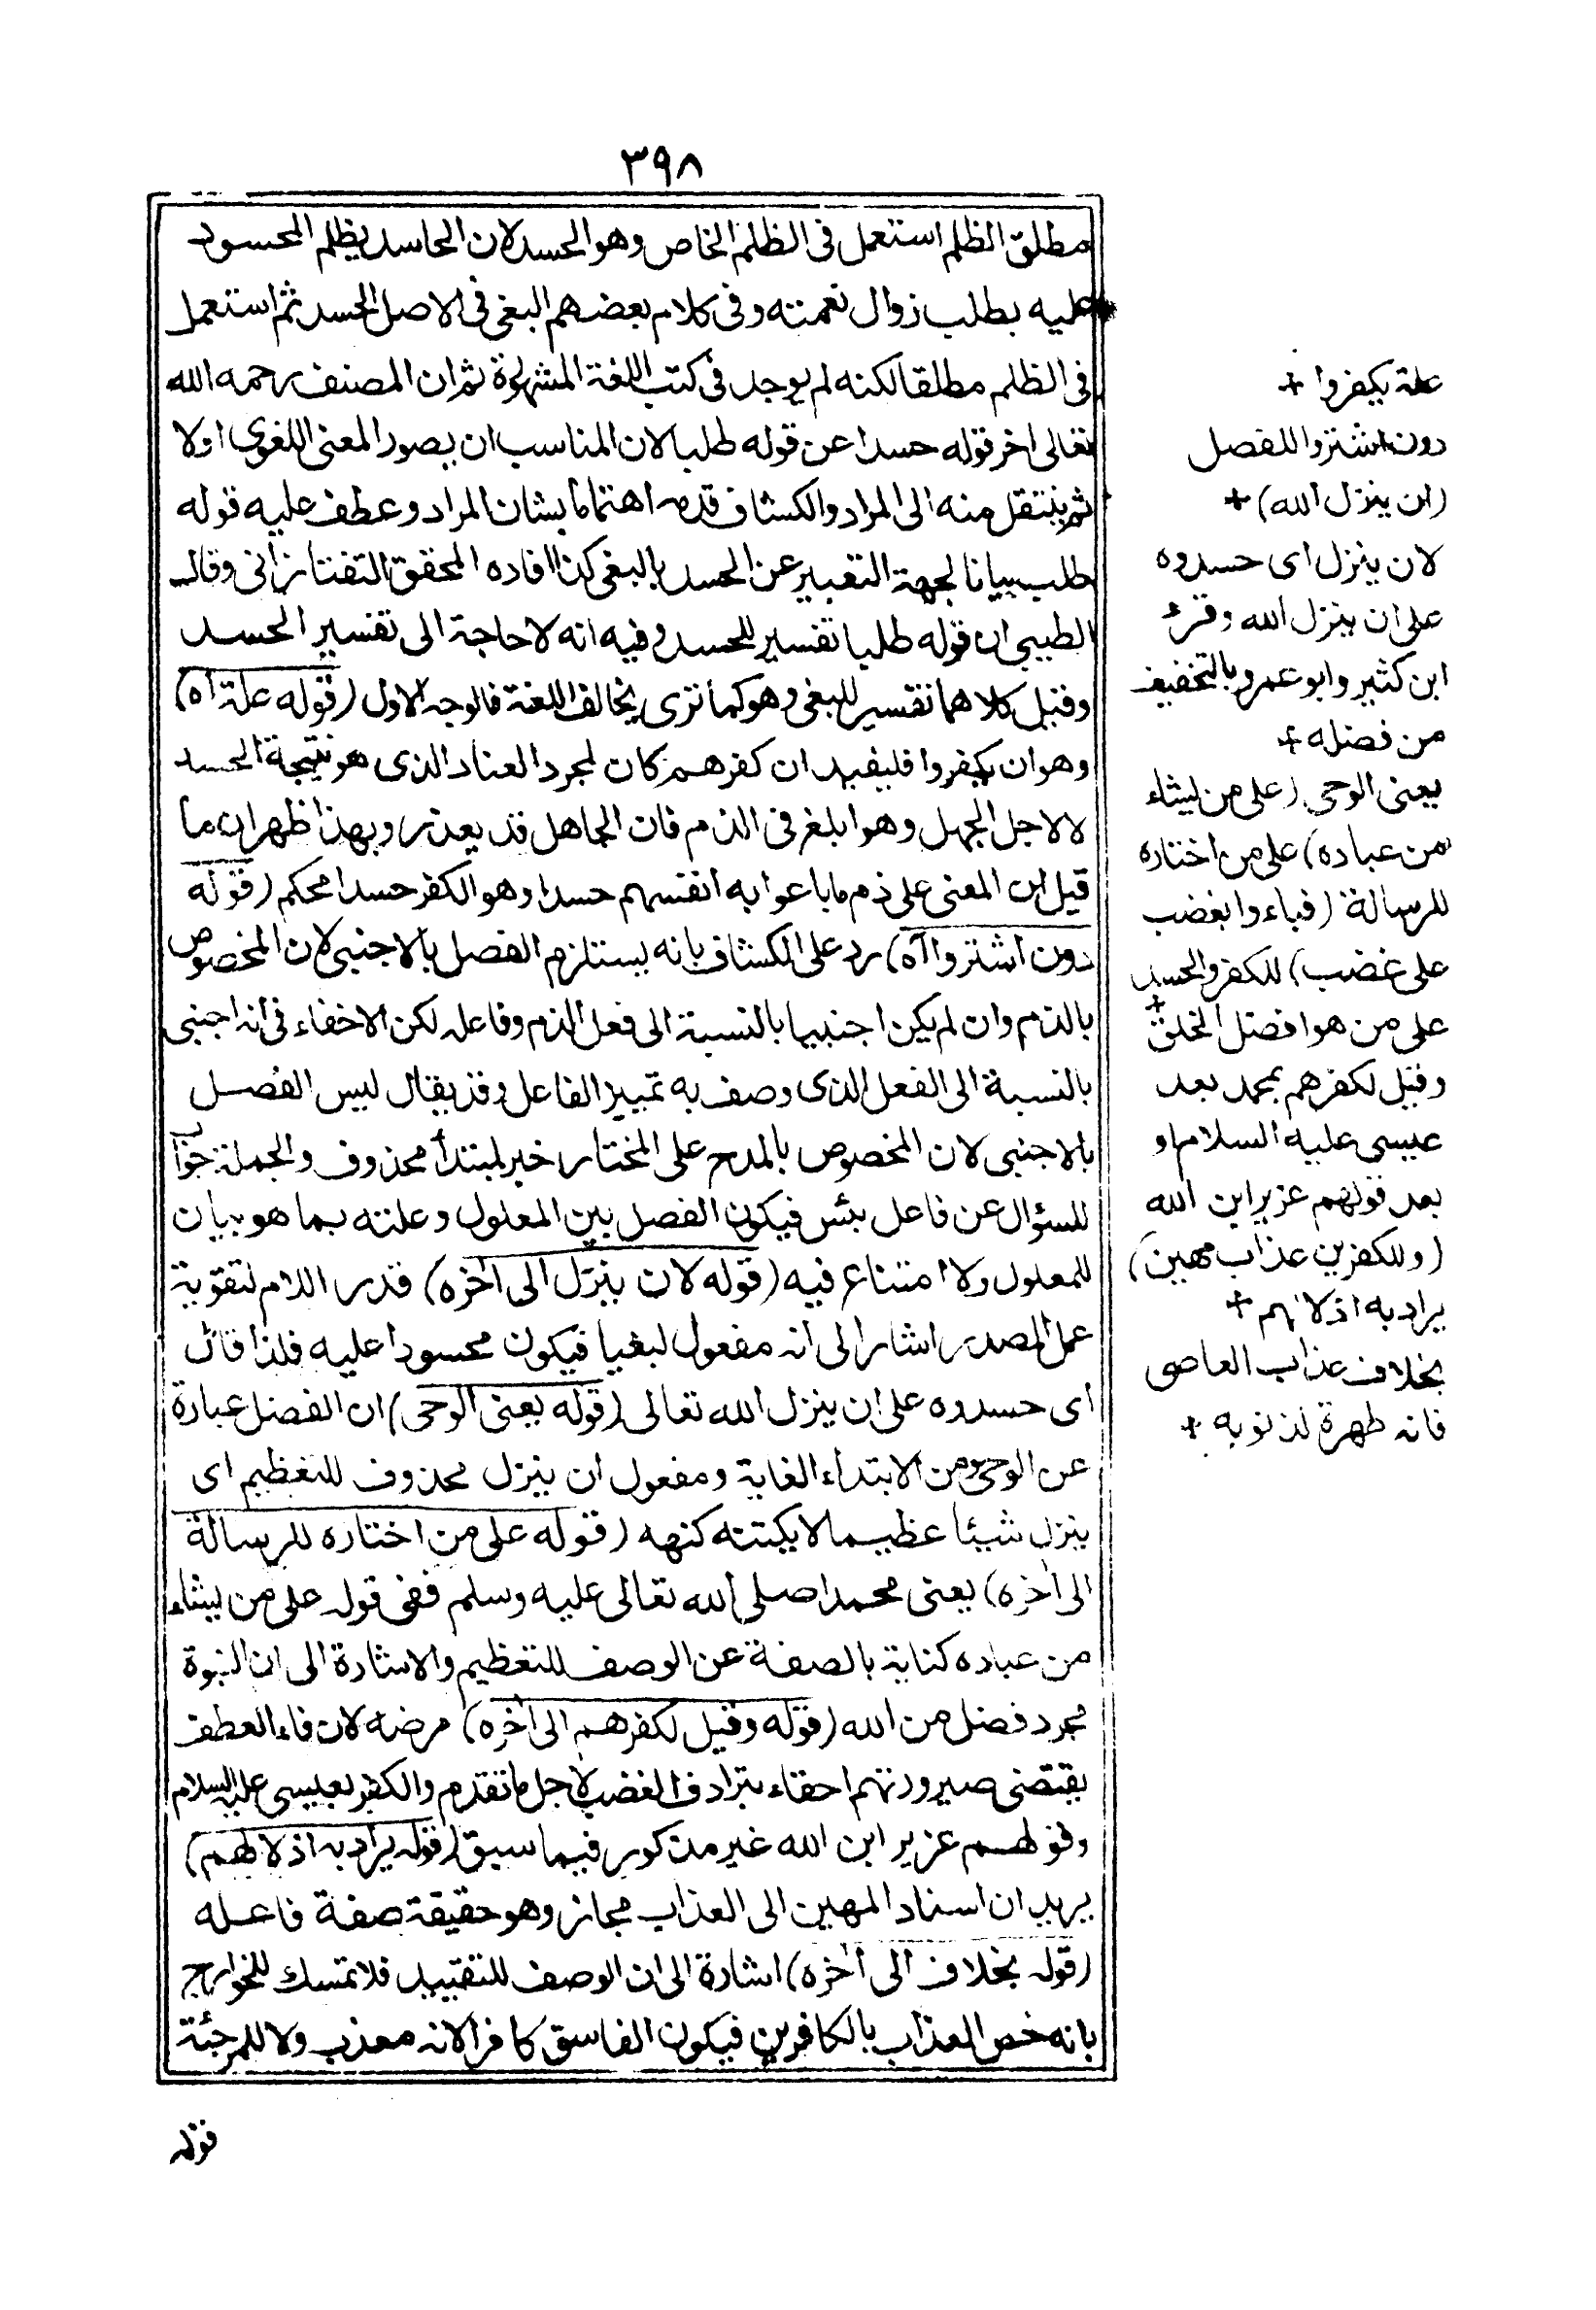 ٣٩٨
مطلق الظلم استعمل فى الظلم الخاص وهو الحسد لان الحاسد يظلم المحسود
عليه بطلب زوال نعمته وفى كلام بعضهم البغى فى الاصل الحسد ثم استعمل
فى الظلم مطلقا لكنه لم يوجد فى كتب اللغة المشهورة ثم ان المصنف رحمه الله
تعالى اخر قوله حسدا عن قوله طلبا لان المناسب ان يصور المعنى اللغوى اولا
ثم ينتقل منه الى المراد والكشاف قدمه اهتماما بشان المراد وعطف عليه قوله
طلب بيانا لجهة التعبير عن الحسد بالبغى كذا افاده المحقق التفتازانى وقال
الطيبى ان قوله طلبا تفسير للحسد وفيه انه لا حاجة الى تفسير الحسد
وقيل كلاهما تفسير للبغى وهو كما ترى يخالف اللغة فالوجه الاول (قوله علة اه)
وهو ان يكفروا فليفيد ان كفرهم كان لمجرد العناد الذى هو نتيجة الحسد
لا لاجل الجهل وهو ابلغ فى الذم فان الجاهل قد يعذر وبهذا ظهر ان ما
قيل ان المعنى على ذم ما باعوا به انفسهم حسدا وهو الكفر حسدا محكم (قوله
دون اشتروا آه) رد على الكشاف بانه يستلزم الفصل بالاجنبى لان المخصوص
بالذم وان لم يكن اجنبيا بالنسبة الى فعل الذم وفاعله لكن لاخفاء فى انه اجنبى
بالنسبة الى الفعل الذى وصف به تمييز الفاعل وقد يقال ليس الفصل
بالاجنبى لان المخصوص بالمدح على المختار خبر لمبتدأ محذوف والجملة جواب
للسؤال عن فاعل بئس فيكون الفصل بين المعلول وعلته بما هو بيان
للمعلول ولا امتناع فيه (قوله لان ينزل الى آخره) قدر اللام لتقوية
عمل المصدر اشار الى انه مفعول لبغيا فيكون محسودا عليه فلذا قال
اى حسدوه على ان ينزل الله تعالى (قوله يعنى الوحى) ان الفضل عبارة
عن الوحى ومن لابتداء الغاية ومفعول ان ينزل محذوف للتعظيم اى
ينزل شيئا عظيما لا يكتنه كنهه (قوله على من اختاره للرسالة
الى آخره) يعنى محمدا صلى الله تعالى عليه وسلم ففى قوله على من يشاء
من عباده كناية بالصفة عن الوصف للتعظيم والاشارة الى ان النبوة
مجرد فضل من الله (قوله وقيل لكفرهم الى آخره) مرضه لان فاء العطف
يقتضى صيرورتهم احقاء بترادف الغضب لاجل ما تقدم والكفر بعيسى عليه السلام
وقولهم عزير ابن الله غير مذكور فيما سبق (قوله يراد به اذلالهم)
يريد ان اسناد المهين الى العذاب مجاز وهو حقيقة صفة فاعله
(قوله بخلاف الى آخره) اشارة الى ان الوصف للتقييد فلا تمسك للخوارج
بانه خص العذاب بالكافرين فيكون الفاسق كافرا لانه معذب ولا للمرجئة
علة يكفروا +
دون اشتروا للفصل
(ان ينزل الله) +
لان ينزل اى حسدوه
على ان ينزل الله وقرئ
ابن كثير وابو عمرو بالتخفيف
من فضله +
يعنى الوحى (على من يشاء
من عباده) على من اختاره
للرسالة (فباءوا بغضب
على غضب) للكفر والحسد
على من هو افضل الخلق +
وقيل لكفرهم بمحمد بعد
عيسى عليه السلام او
بعد قولهم عزير ابن الله
(وللكفرين عذاب مهين)
يراد به اذلالهم +
بخلاف عذاب العاصى
فانه طهرة لذنوبه +
قوله